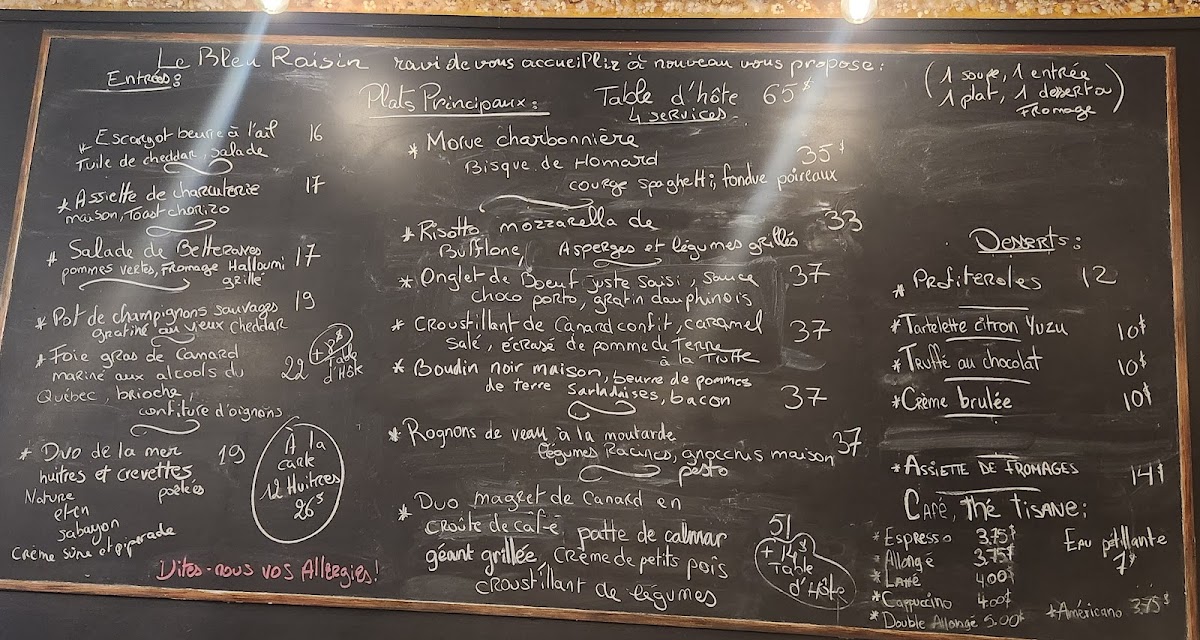 Le Bleu Raisin ravi de vous accueillir à nouveau vous propose:
Entrées:
Escargot beurre à l'ail 16
Tuile de cheddar, salade
* Assiette de charcuterie 17
maison, Toast chorizo
* Salade de Betteraves 17
pommes vertes, Fromage Halloumi
grillé
* Pot de champignons sauvages 19
gratiné au vieux cheddar
* Foie gras de Canard
mariné aux alcools du 22
Québec, brioche,
confiture d'oignons
Table
d'Hôte
* Duo de la mer 19
huîtres et crevettes
Nature poêlées
et en
sabayon
Crème sûre et piperade
À la
carte
12 Huitres
26$
Dites-nous vos Allergies!
Plats Principaux:
Table d'hôte 65$
4 services
(1 soupe, 1 entrée
1 plat, 1 dessert ou
Fromage)
* Morue charbonnière
Bisque de Homard 35$
courge spaghetti; fondue poireaux
* Risotto mozzarella de 33
Bufflone, Asperges et légumes grillés
* Onglet de Boeuf juste saisi, sauce 37
choco porto, gratin dauphinois
* Croustillant de Canard confit, caramel 37
salé, écrasé de pomme de Terre
à la Truffe
* Boudin noir maison, beurre de pommes
de terre Sarladaises, bacon 37
* Rognons de veau à la moutarde 37
légumes Racines, gnocchis maison
pesto
* Duo magret de Canard en
croûte de café, patte de calmar 51
géant grillée, Crème de petits pois
croustillant de légumes
+ 14$
Table
d'Hôte
Desserts:
* Profiteroles 12
* Tartelette citron Yuzu 10$
* Truffé au chocolat 10$
* Crème brulée 10$
* Assiette de fromages 14$
Café, Thé Tisane:
* Espresso 3.75$
* Allongé 3.75$
* Latté 4.00$
* Cappuccino 4.00$
* Double Allongé 5.00$
Eau pétillante
7$
* Américano 3.75$